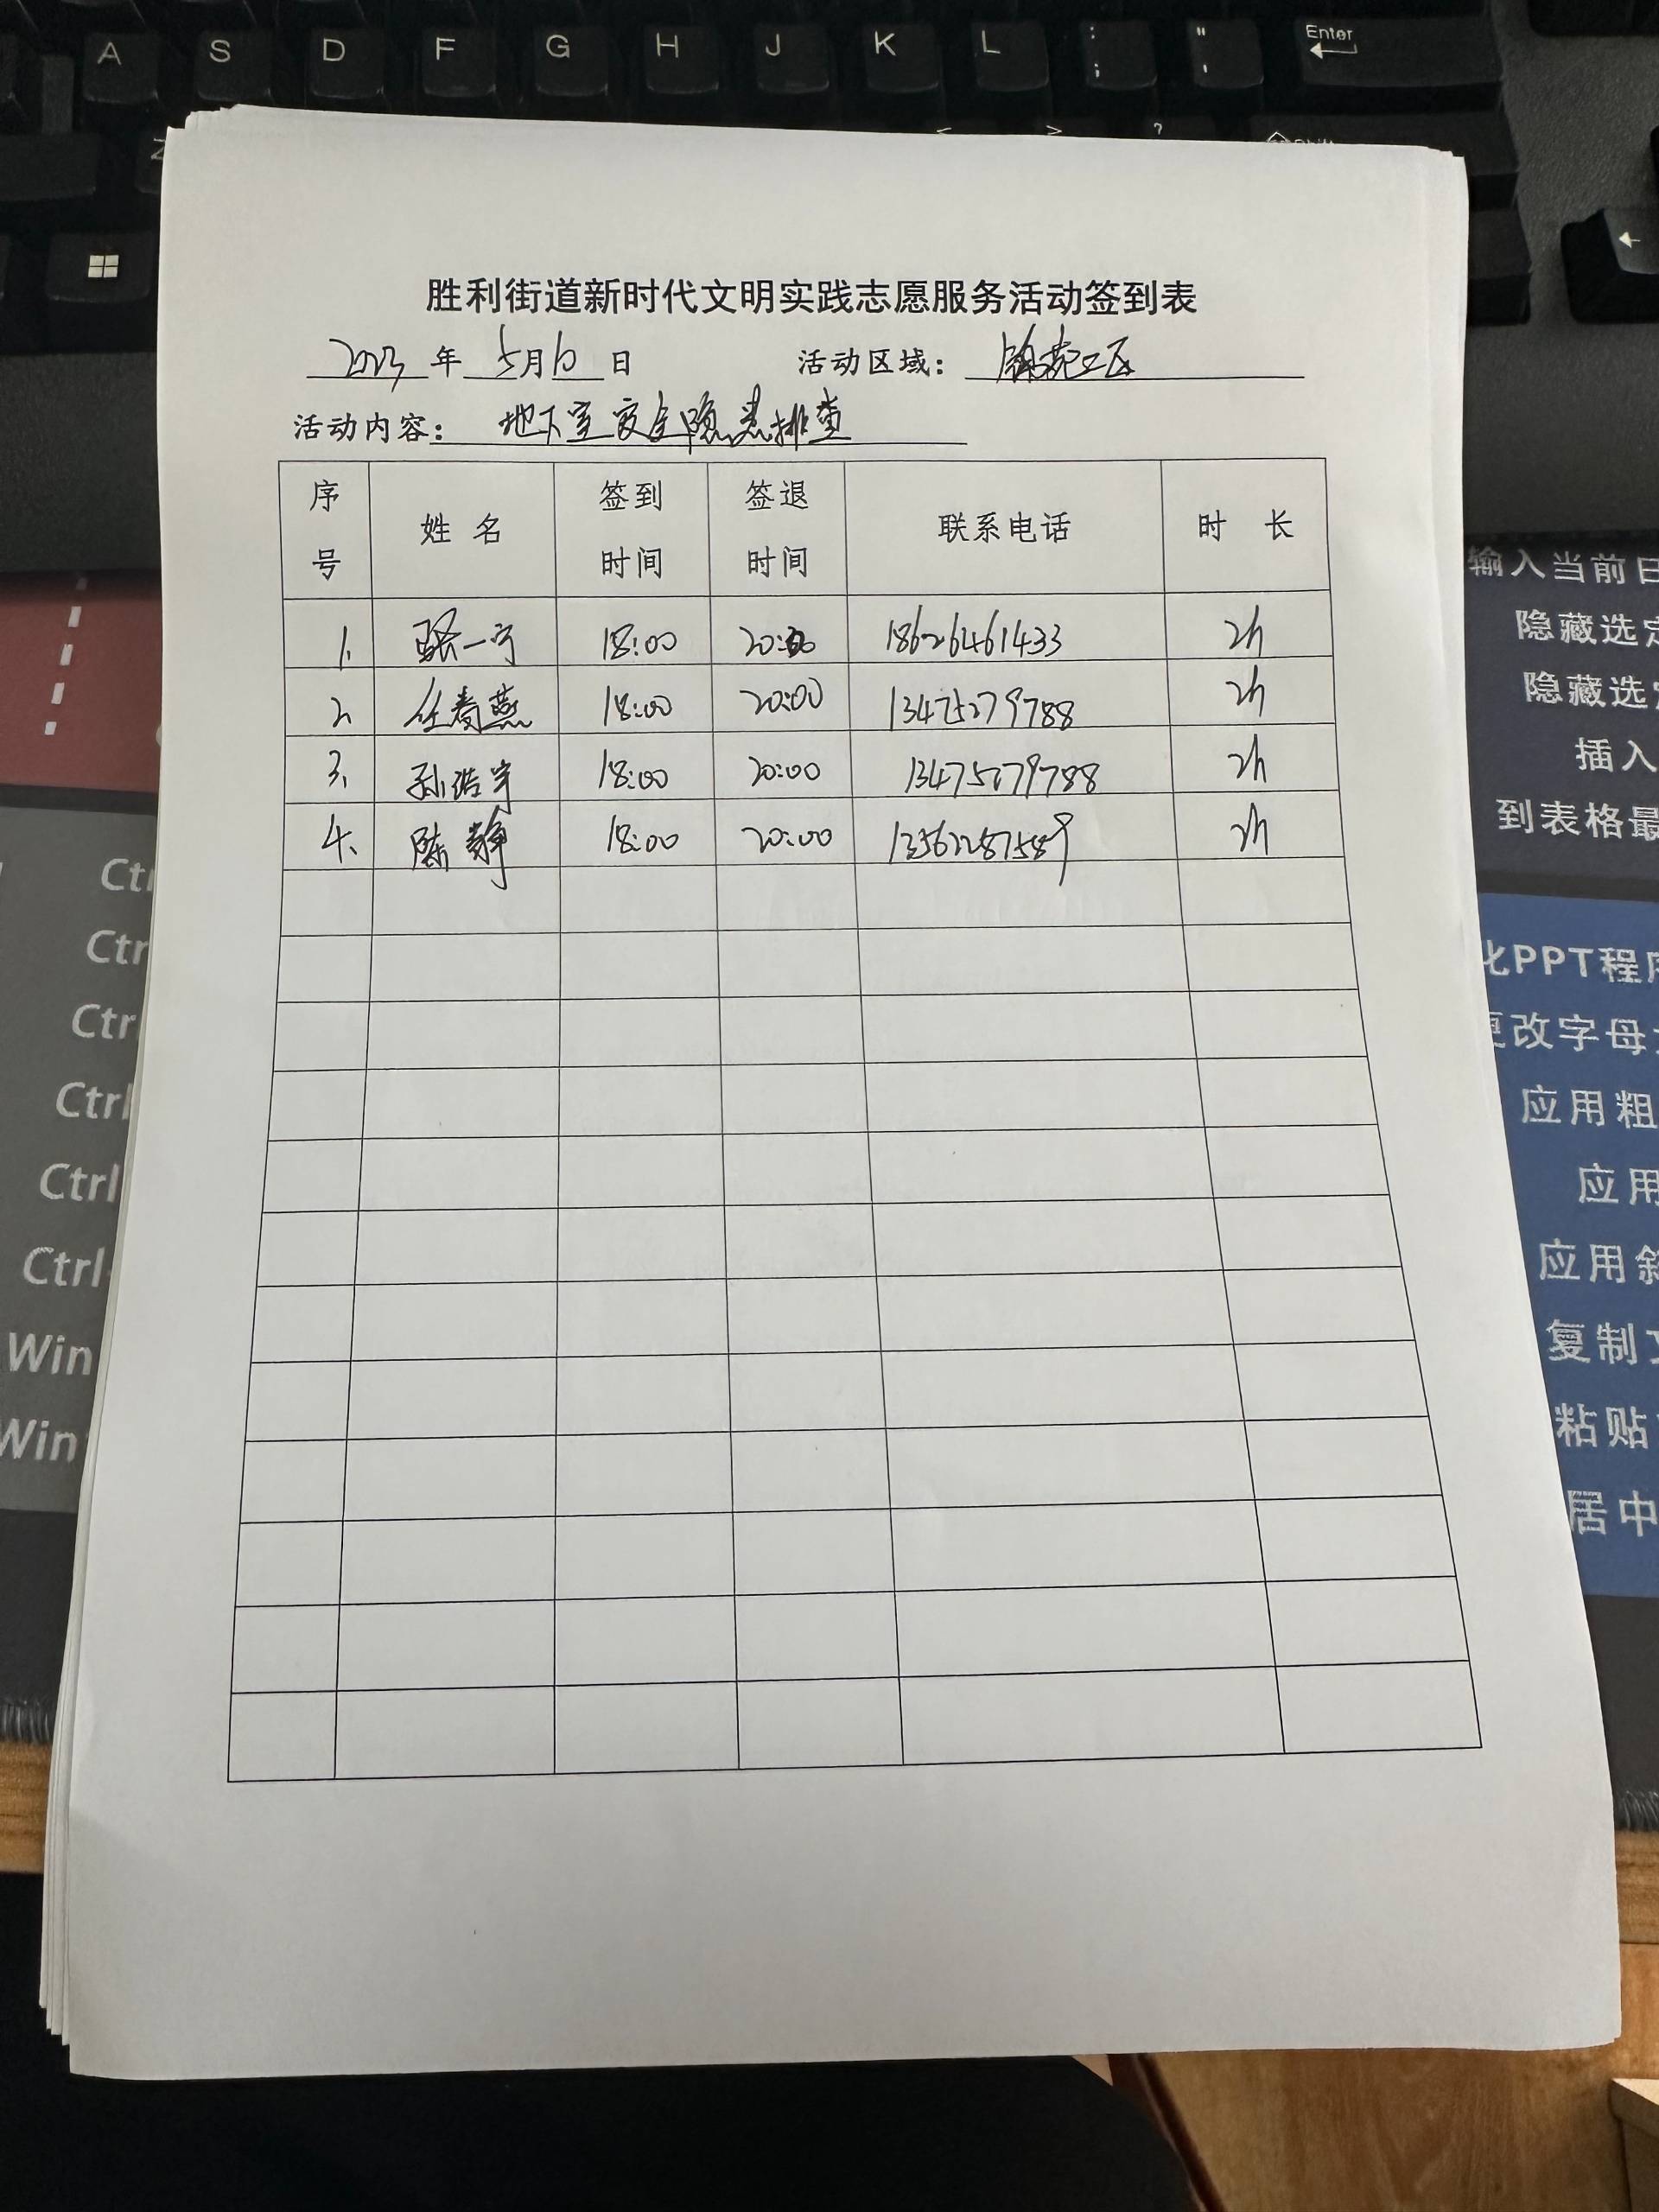 A S D F G H J K L : ; " ' Enter
Z < > ?
胜利街道新时代文明实践志愿服务活动签到表
2023 年 5月10 日 活动区域： 锦苑工区
活动内容： 地下室安全隐患排查
序号 姓 名 签到时间 签退时间 联系电话 时 长
1、 一宁 18:00 20:00 18626461433 2h
2、 任春燕 18:00 20:00 13475279788 2h
3、 孙浩宇 18:00 20:00 2h
4、 陈静 18:00 20:00 2h
输入当前日
隐藏选定
隐藏选定
插入
到表格最
Ctrl
Ctr
Ctr
Ctrl
Ctrl
Ctrl
Win
Win
化PPT程序
更改字母
应用粗
应用
应用斜
复制文
粘贴
居中